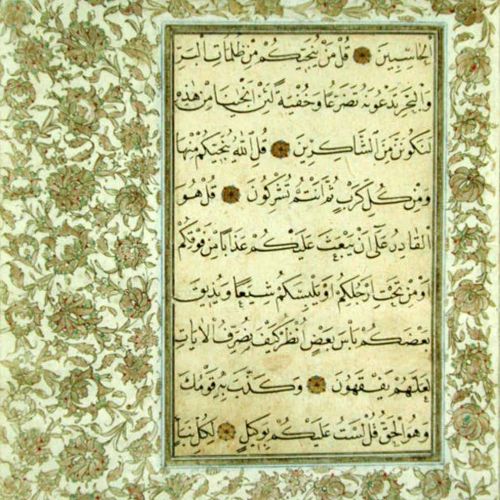 الحاسبين قل من ينجيكم من ظلمات البر
والبحر تدعونه تضرعا وخفية لئن انجينا من هذه
لنكونن من الشاكرين قل الله ينجيكم منها
ومن كل كرب ثم انتم تشركون قل هو
القادر على ان يبعث عليكم عذابا من فوقكم
او من تحت ارجلكم او يلبسكم شيعا ويذيق
بعضكم باس بعض انظر كيف نصرف الايات
لعلهم يفقهون وكذب به قومك
وهو الحق قل لست عليكم بوكيل لكل نبا